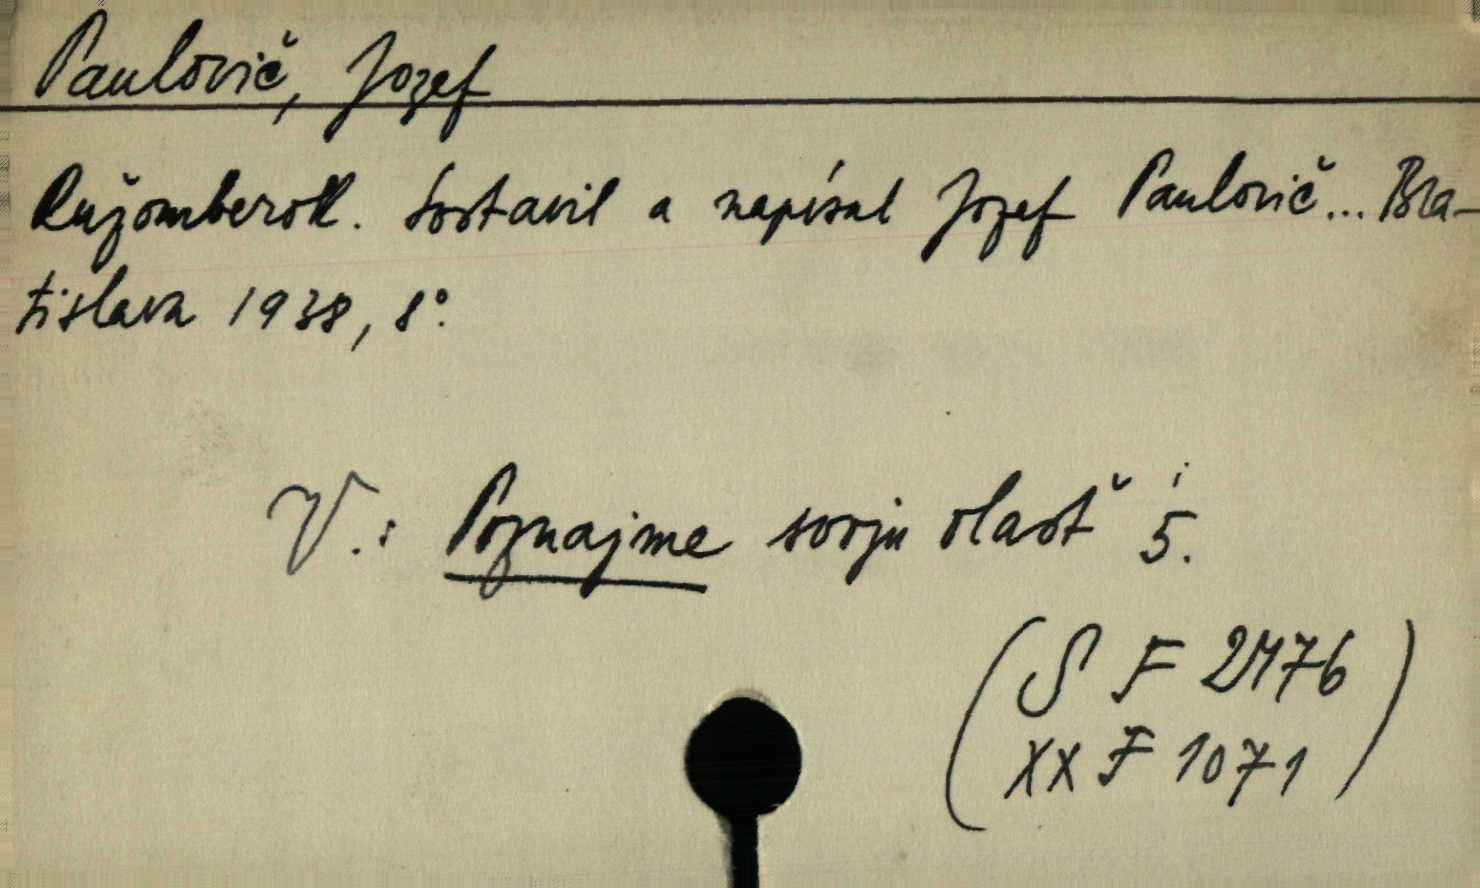 Paulovič, Jozef
Ružomberok. Sostavil a napísal Jozef Paulovič... Bra-
tislava 1938, 8°.
V.: Poznajme svoju vlasť 5.
(S F 2176
XX F 1071)